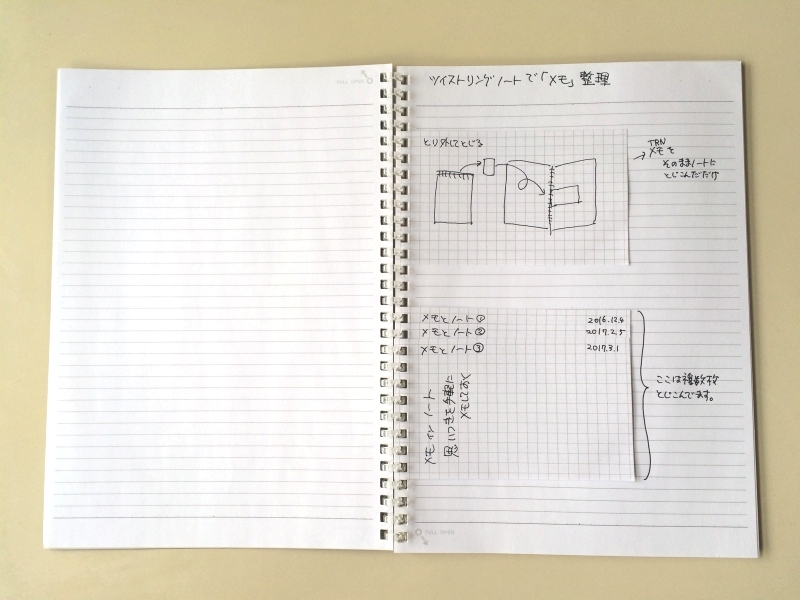 ツイストリングノートで「メモ」整理
とり外してとじる
TRN
メモを
そのままノートに
とじこんだだけ
メモとノート① 2016.12.4
メモとノート② 2017.2.5
メモとノート③ 2017.3.1
メモ⇔ノート
思いつきを手軽に
メモしておく
ここは複数枚
とじこんでます。